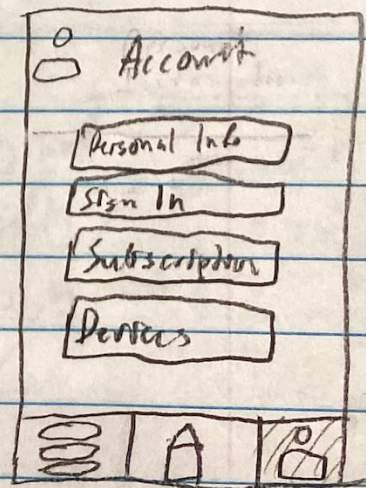 Account
Personal Info
Sign In
Subscription
Devices